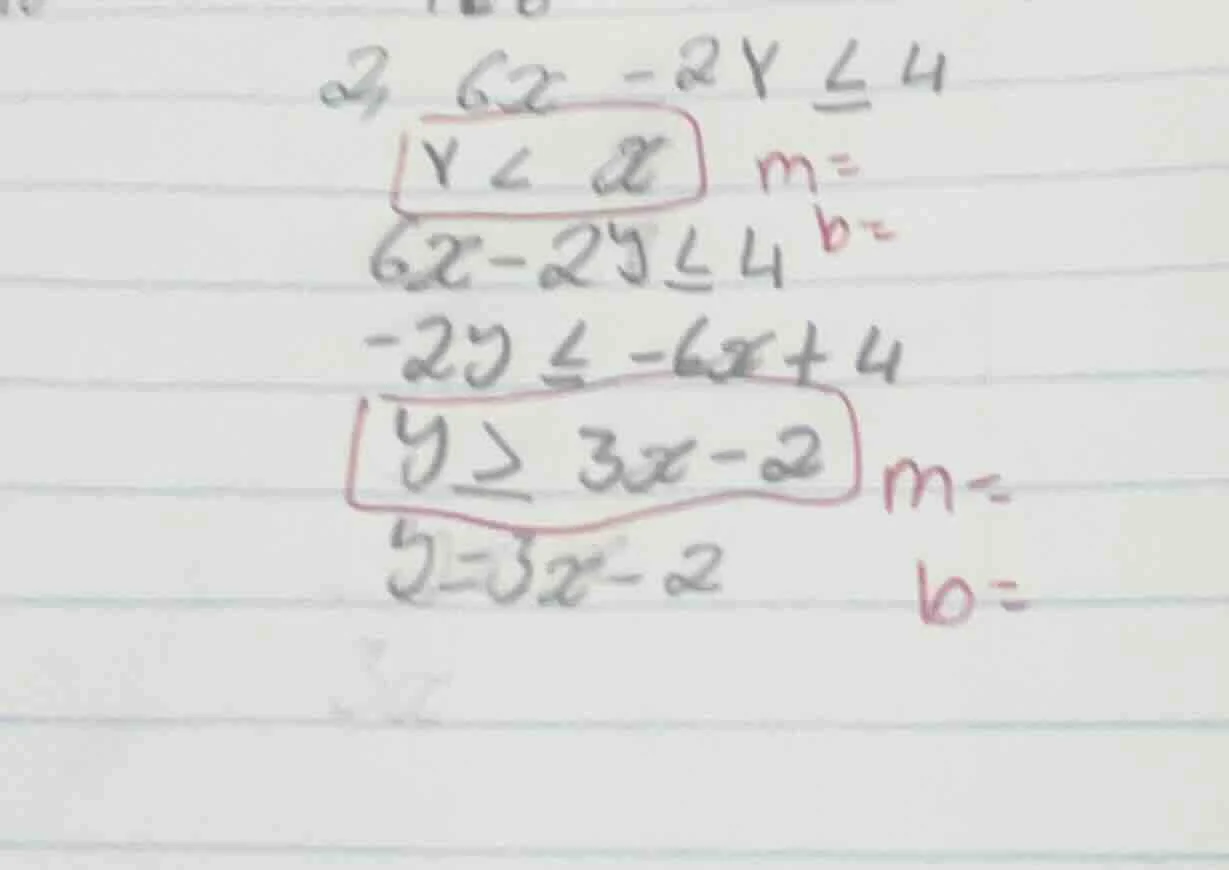 2, 6x - 2Y ≤ 4
Y < x m=
b=
6x - 2y ≤ 4
-2y ≤ -6x + 4
y ≥ 3x - 2 m=
y = 3x - 2 b=